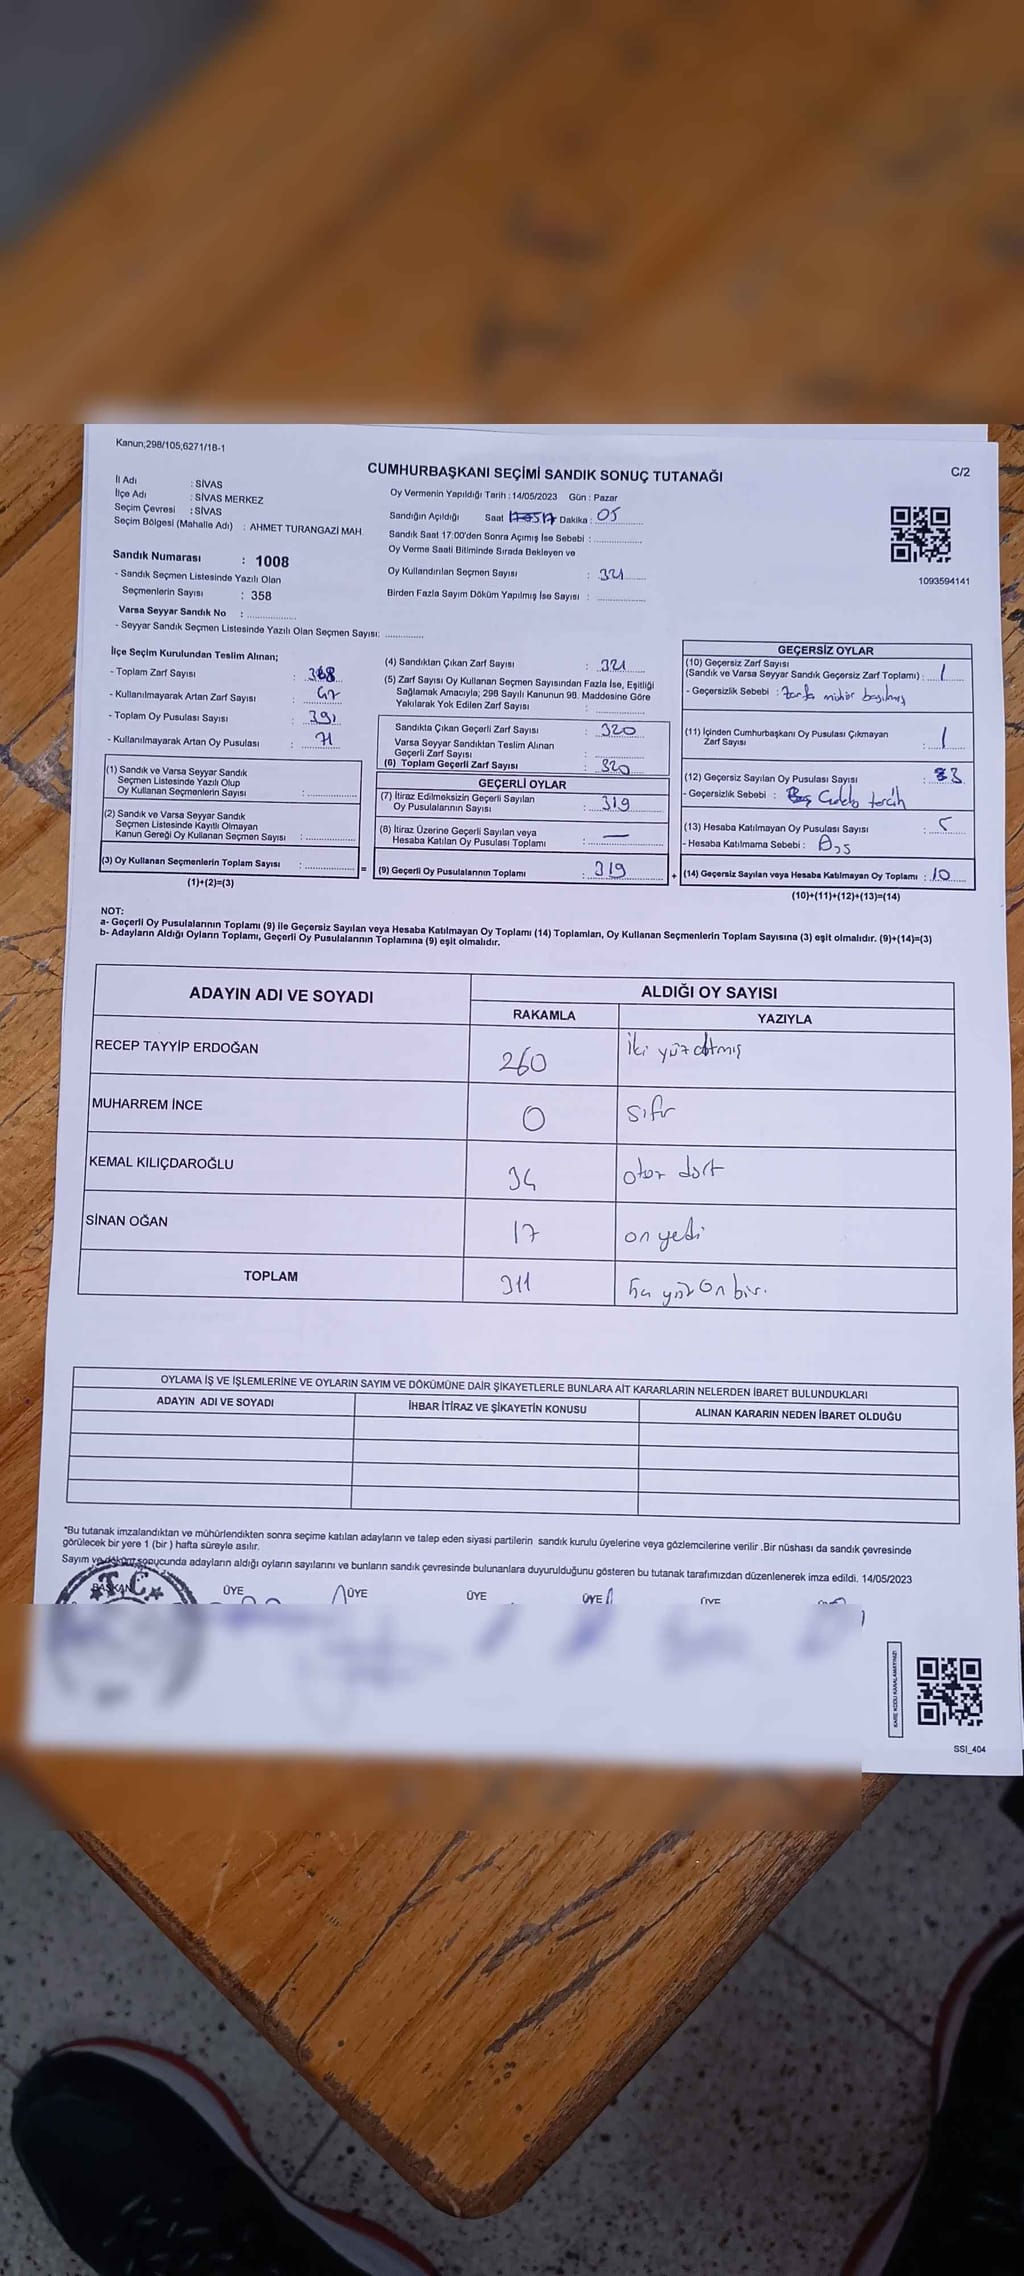 Kanun;298/105;6271/18-1
C/2
CUMHURBAŞKANI SEÇİMİ SANDIK SONUÇ TUTANAĞI
İl Adı : SİVAS
İlçe Adı : SİVAS MERKEZ
Seçim Çevresi : SİVAS
Seçim Bölgesi (Mahalle Adı) : AHMET TURANGAZİ MAH.
Oy Vermenin Yapıldığı Tarih : 14/05/2023 Gün : Pazar
Sandığın Açıldığı Saat 17 Dakika : 05
Sandık Saat 17:00'den Sonra Açımış İse Sebebi :
Oy Verme Saati Bitiminde Sırada Bekleyen ve
Oy Kullandırılan Seçmen Sayısı : 321
Birden Fazla Sayım Döküm Yapılmış İse Sayısı :
1093594141
Sandık Numarası : 1008
- Sandık Seçmen Listesinde Yazılı Olan
Seçmenlerin Sayısı : 358
Varsa Seyyar Sandık No :
- Seyyar Sandık Seçmen Listesinde Yazılı Olan Seçmen Sayısı:
İlçe Seçim Kurulundan Teslim Alınan;
- Toplam Zarf Sayısı : 368
- Kullanılmayarak Artan Zarf Sayısı : 47
- Toplam Oy Pusulası Sayısı : 391
- Kullanılmayarak Artan Oy Pusulası : 71
(1) Sandık ve Varsa Seyyar Sandık
Seçmen Listesinde Yazılı Olup
Oy Kullanan Seçmenlerin Sayısı :
(2) Sandık ve Varsa Seyyar Sandık
Seçmen Listesinde Kayıtlı Olmayan
Kanun Gereği Oy Kullanan Seçmen Sayısı :
(3) Oy Kullanan Seçmenlerin Toplam Sayısı :
(1)+(2)=(3)
=
(4) Sandıktan Çıkan Zarf Sayısı : 321
(5) Zarf Sayısı Oy Kullanan Seçmen Sayısından Fazla İse, Eşitliği
Sağlamak Amacıyla; 298 Sayılı Kanunun 98. Maddesine Göre
Yakılarak Yok Edilen Zarf Sayısı :
Sandıkta Çıkan Geçerli Zarf Sayısı : 320
Varsa Seyyar Sandıktan Teslim Alınan
Geçerli Zarf Sayısı :
(6) Toplam Geçerli Zarf Sayısı : 320
GEÇERLİ OYLAR
(7) İtiraz Edilmeksizin Geçerli Sayılan
Oy Pusulalarının Sayısı : 319
(8) İtiraz Üzerine Geçerli Sayılan veya
Hesaba Katılan Oy Pusulası Toplamı : —
(9) Geçerli Oy Pusulalarının Toplamı : 319
+
GEÇERSİZ OYLAR
(10) Geçersiz Zarf Sayısı
(Sandık ve Varsa Seyyar Sandık Geçersiz Zarf Toplamı) : 1
- Geçersizlik Sebebi : Zarfa mühür basılmış
(11) İçinden Cumhurbaşkanı Oy Pusulası Çıkmayan
Zarf Sayısı : 1
(12) Geçersiz Sayılan Oy Pusulası Sayısı : 3
- Geçersizlik Sebebi : tercih
(13) Hesaba Katılmayan Oy Pusulası Sayısı : 5
- Hesaba Katılmama Sebebi :
(14) Geçersiz Sayılan veya Hesaba Katılmayan Oy Toplamı : 10
(10)+(11)+(12)+(13)=(14)
NOT:
a- Geçerli Oy Pusulalarının Toplamı (9) ile Geçersiz Sayılan veya Hesaba Katılmayan Oy Toplamı (14) Toplamları, Oy Kullanan Seçmenlerin Toplam Sayısına (3) eşit olmalıdır. (9)+(14)=(3)
b- Adayların Aldığı Oyların Toplamı, Geçerli Oy Pusulalarının Toplamına (9) eşit olmalıdır.
ADAYIN ADI VE SOYADI
ALDIĞI OY SAYISI
RAKAMLA YAZIYLA
RECEP TAYYİP ERDOĞAN 260 iki yüz atmış
MUHARREM İNCE 0 sıfır
KEMAL KILIÇDAROĞLU 34 otuz dört
SİNAN OĞAN 17 on yedi
TOPLAM 311 yüz on bir.
OYLAMA İŞ VE İŞLEMLERİNE VE OYLARIN SAYIM VE DÖKÜMÜNE DAİR ŞİKAYETLERLE BUNLARA AİT KARARLARIN NELERDEN İBARET BULUNDUKLARI
ADAYIN ADI VE SOYADI İHBAR İTİRAZ VE ŞİKAYETİN KONUSU ALINAN KARARIN NEDEN İBARET OLDUĞU
*Bu tutanak imzalandıktan ve mühürlendikten sonra seçime katılan adayların ve talep eden siyasi partilerin sandık kurulu üyelerine veya gözlemcilerine verilir .Bir nüshası da sandık çevresinde
görülecek bir yere 1 (bir ) hafta süreyle asılır.
Sayım ve döküm sonucunda adayların aldığı oyların sayılarını ve bunların sandık çevresinde bulunanlara duyurulduğunu gösteren bu tutanak tarafımızdan düzenlenerek imza edildi. 14/05/2023
BAŞKAN ÜYE ÜYE ÜYE ÜYE ÜYE
T.C.
KARE KODU KARALAMAYINIZ!
SSI_404